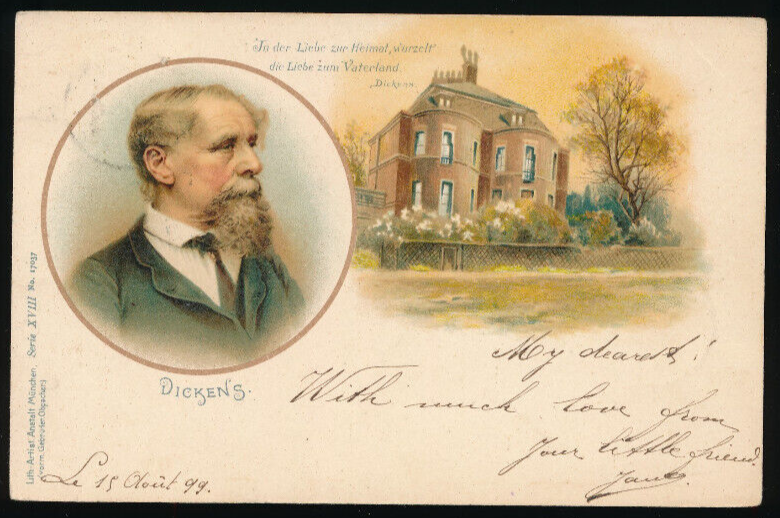 „In der Liebe zur Heimat, wurzelt
die Liebe zum Vaterland.
Dickens.
DICKEN'S.
Lith.-Artist. Anstalt München
(vorm. Gebrüder Obpacher)
Serie XVIII No. 17037
My dearest!
With much love from
your little friend.
Le 15 Août 99.